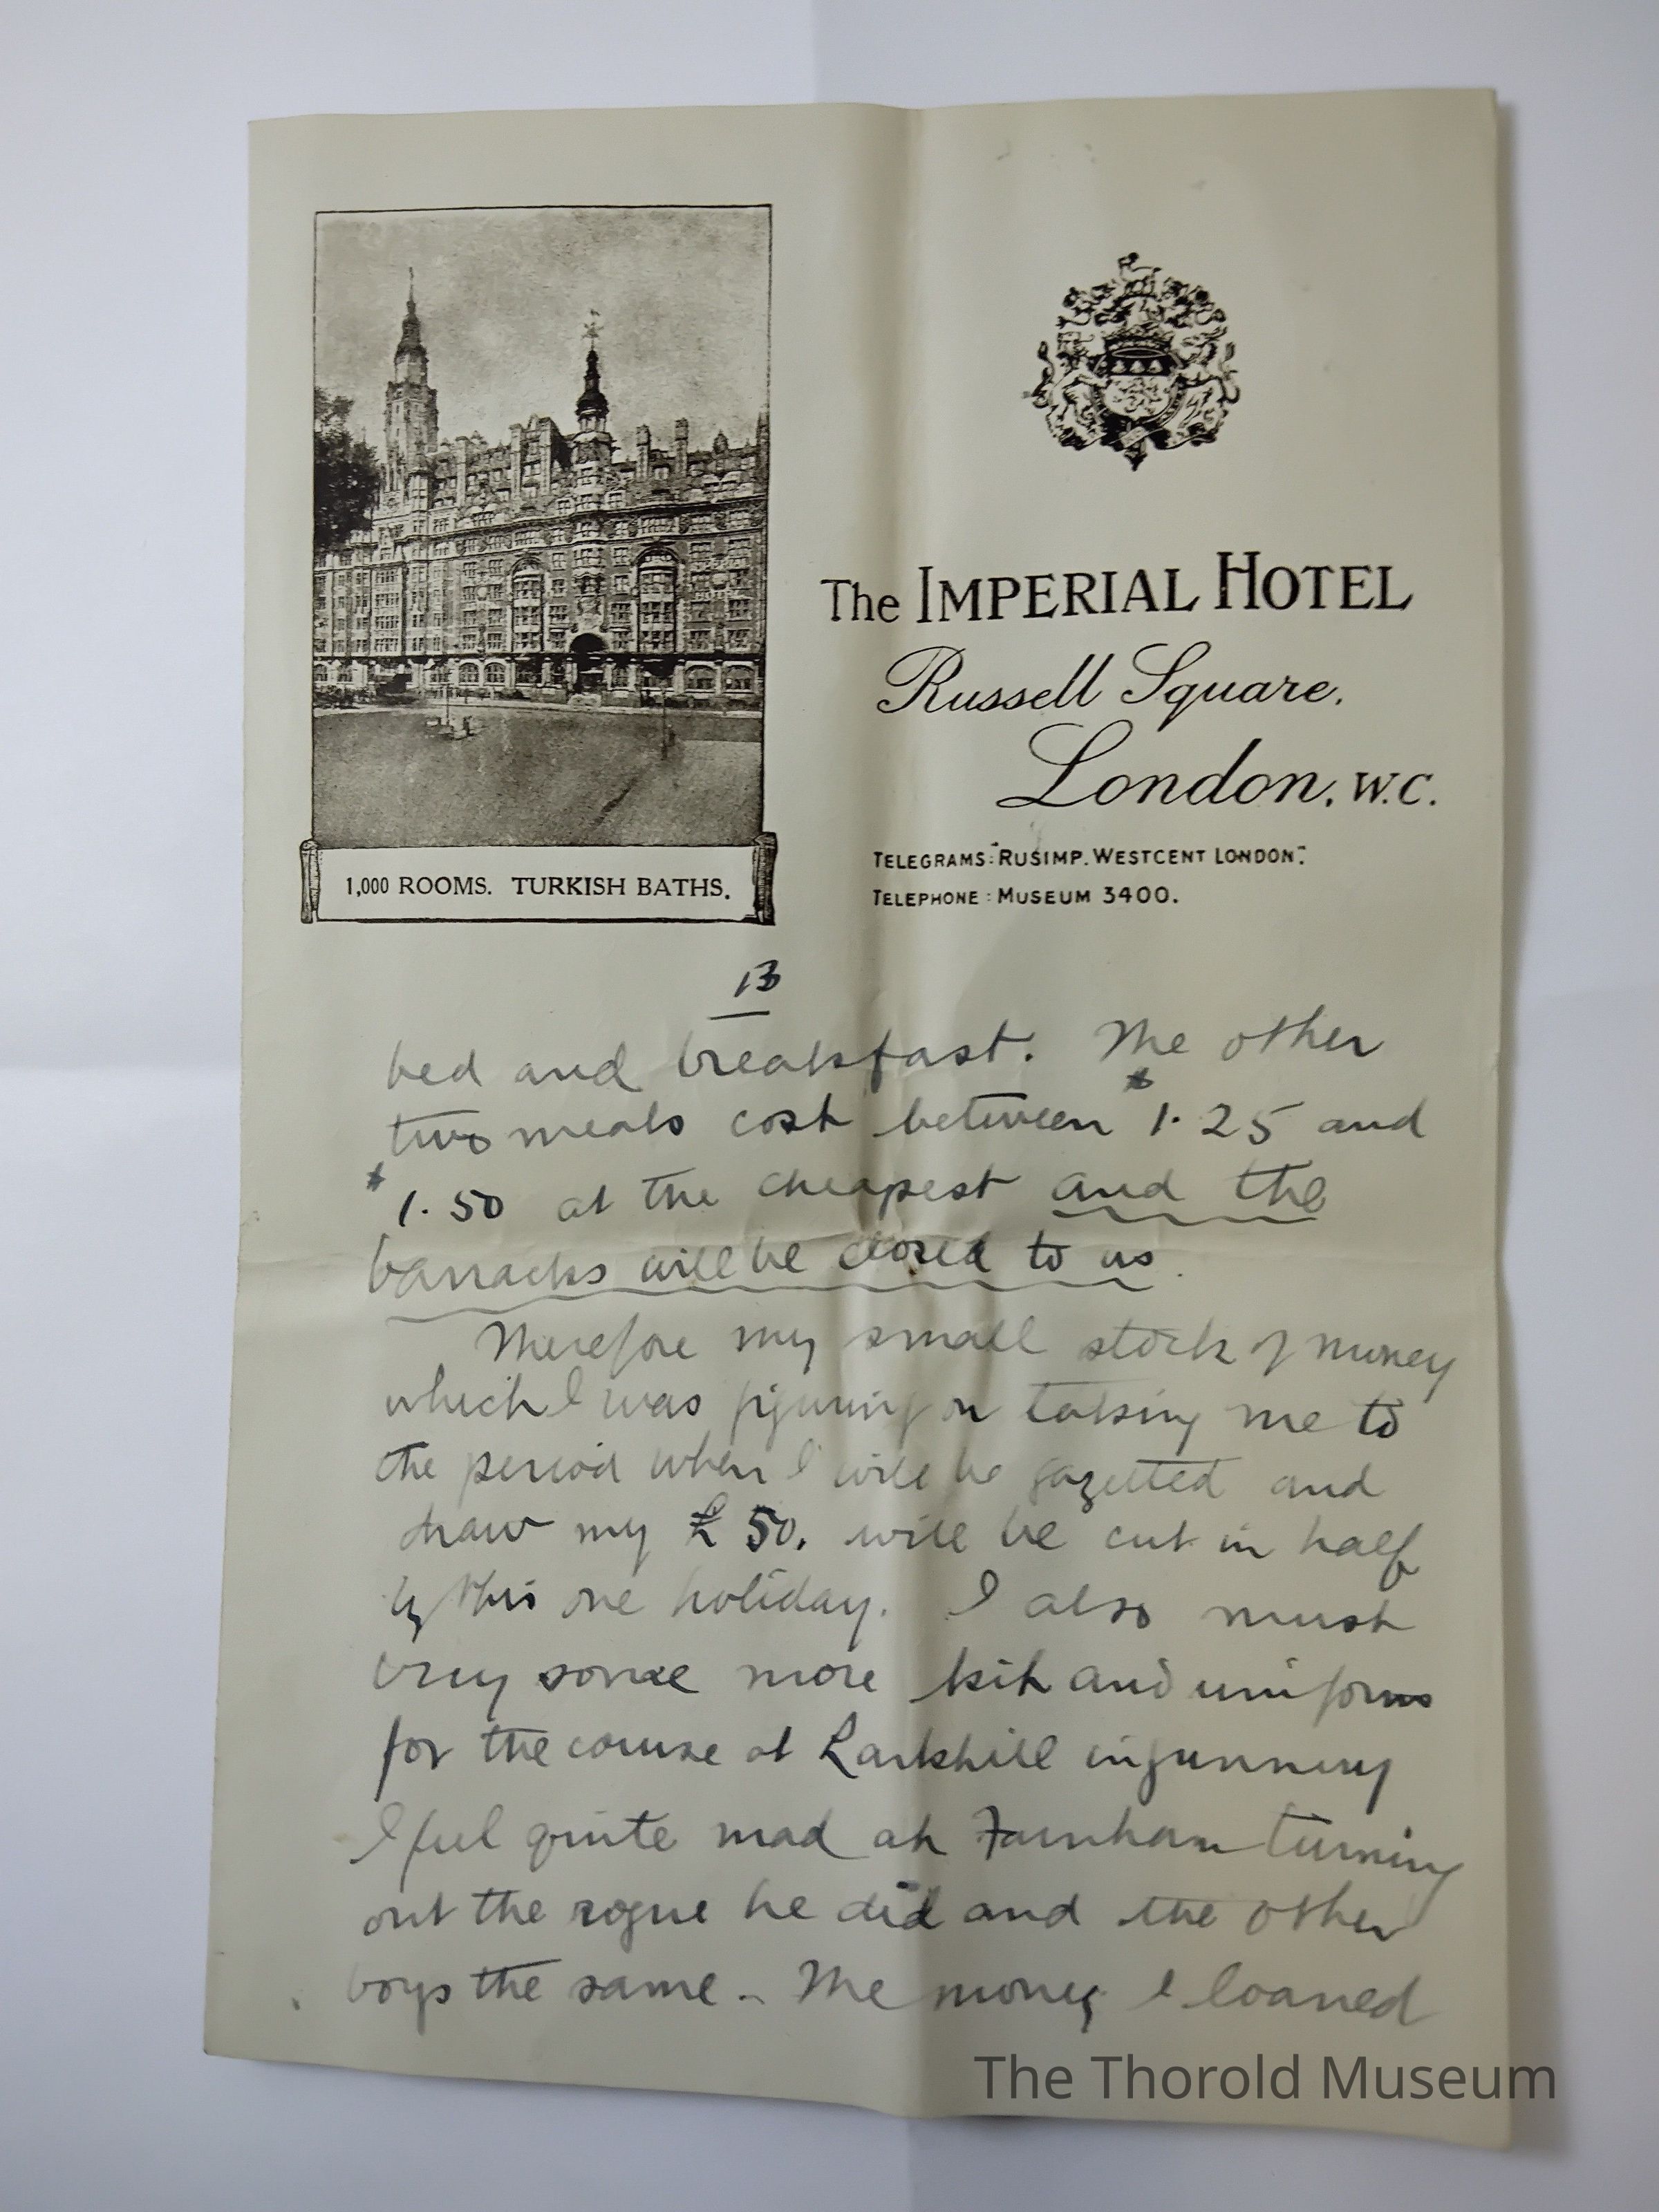 The IMPERIAL HOTEL
Russell Square,
London, W.C.
TELEGRAMS: "RUSIMP. WESTCENT LONDON".
TELEPHONE: MUSEUM 3400.
1,000 ROOMS. TURKISH BATHS.
13
bed and breakfast. The other
two meals cost between $1.25 and
$1.50 at the cheapest and the
barracks will be closed to us.
Therefore my small stock of money
which I was figuring on taking me to
the period when I will be gazetted and
draw my £50. will be cut in half
by this one holiday. I also must
buy some more kit and uniforms
for the course at Larkhill in gunnery
I feel quite mad at Farnham turning
out the rogue he did and the other
boys the same - The money I loaned
The Thorold Museum